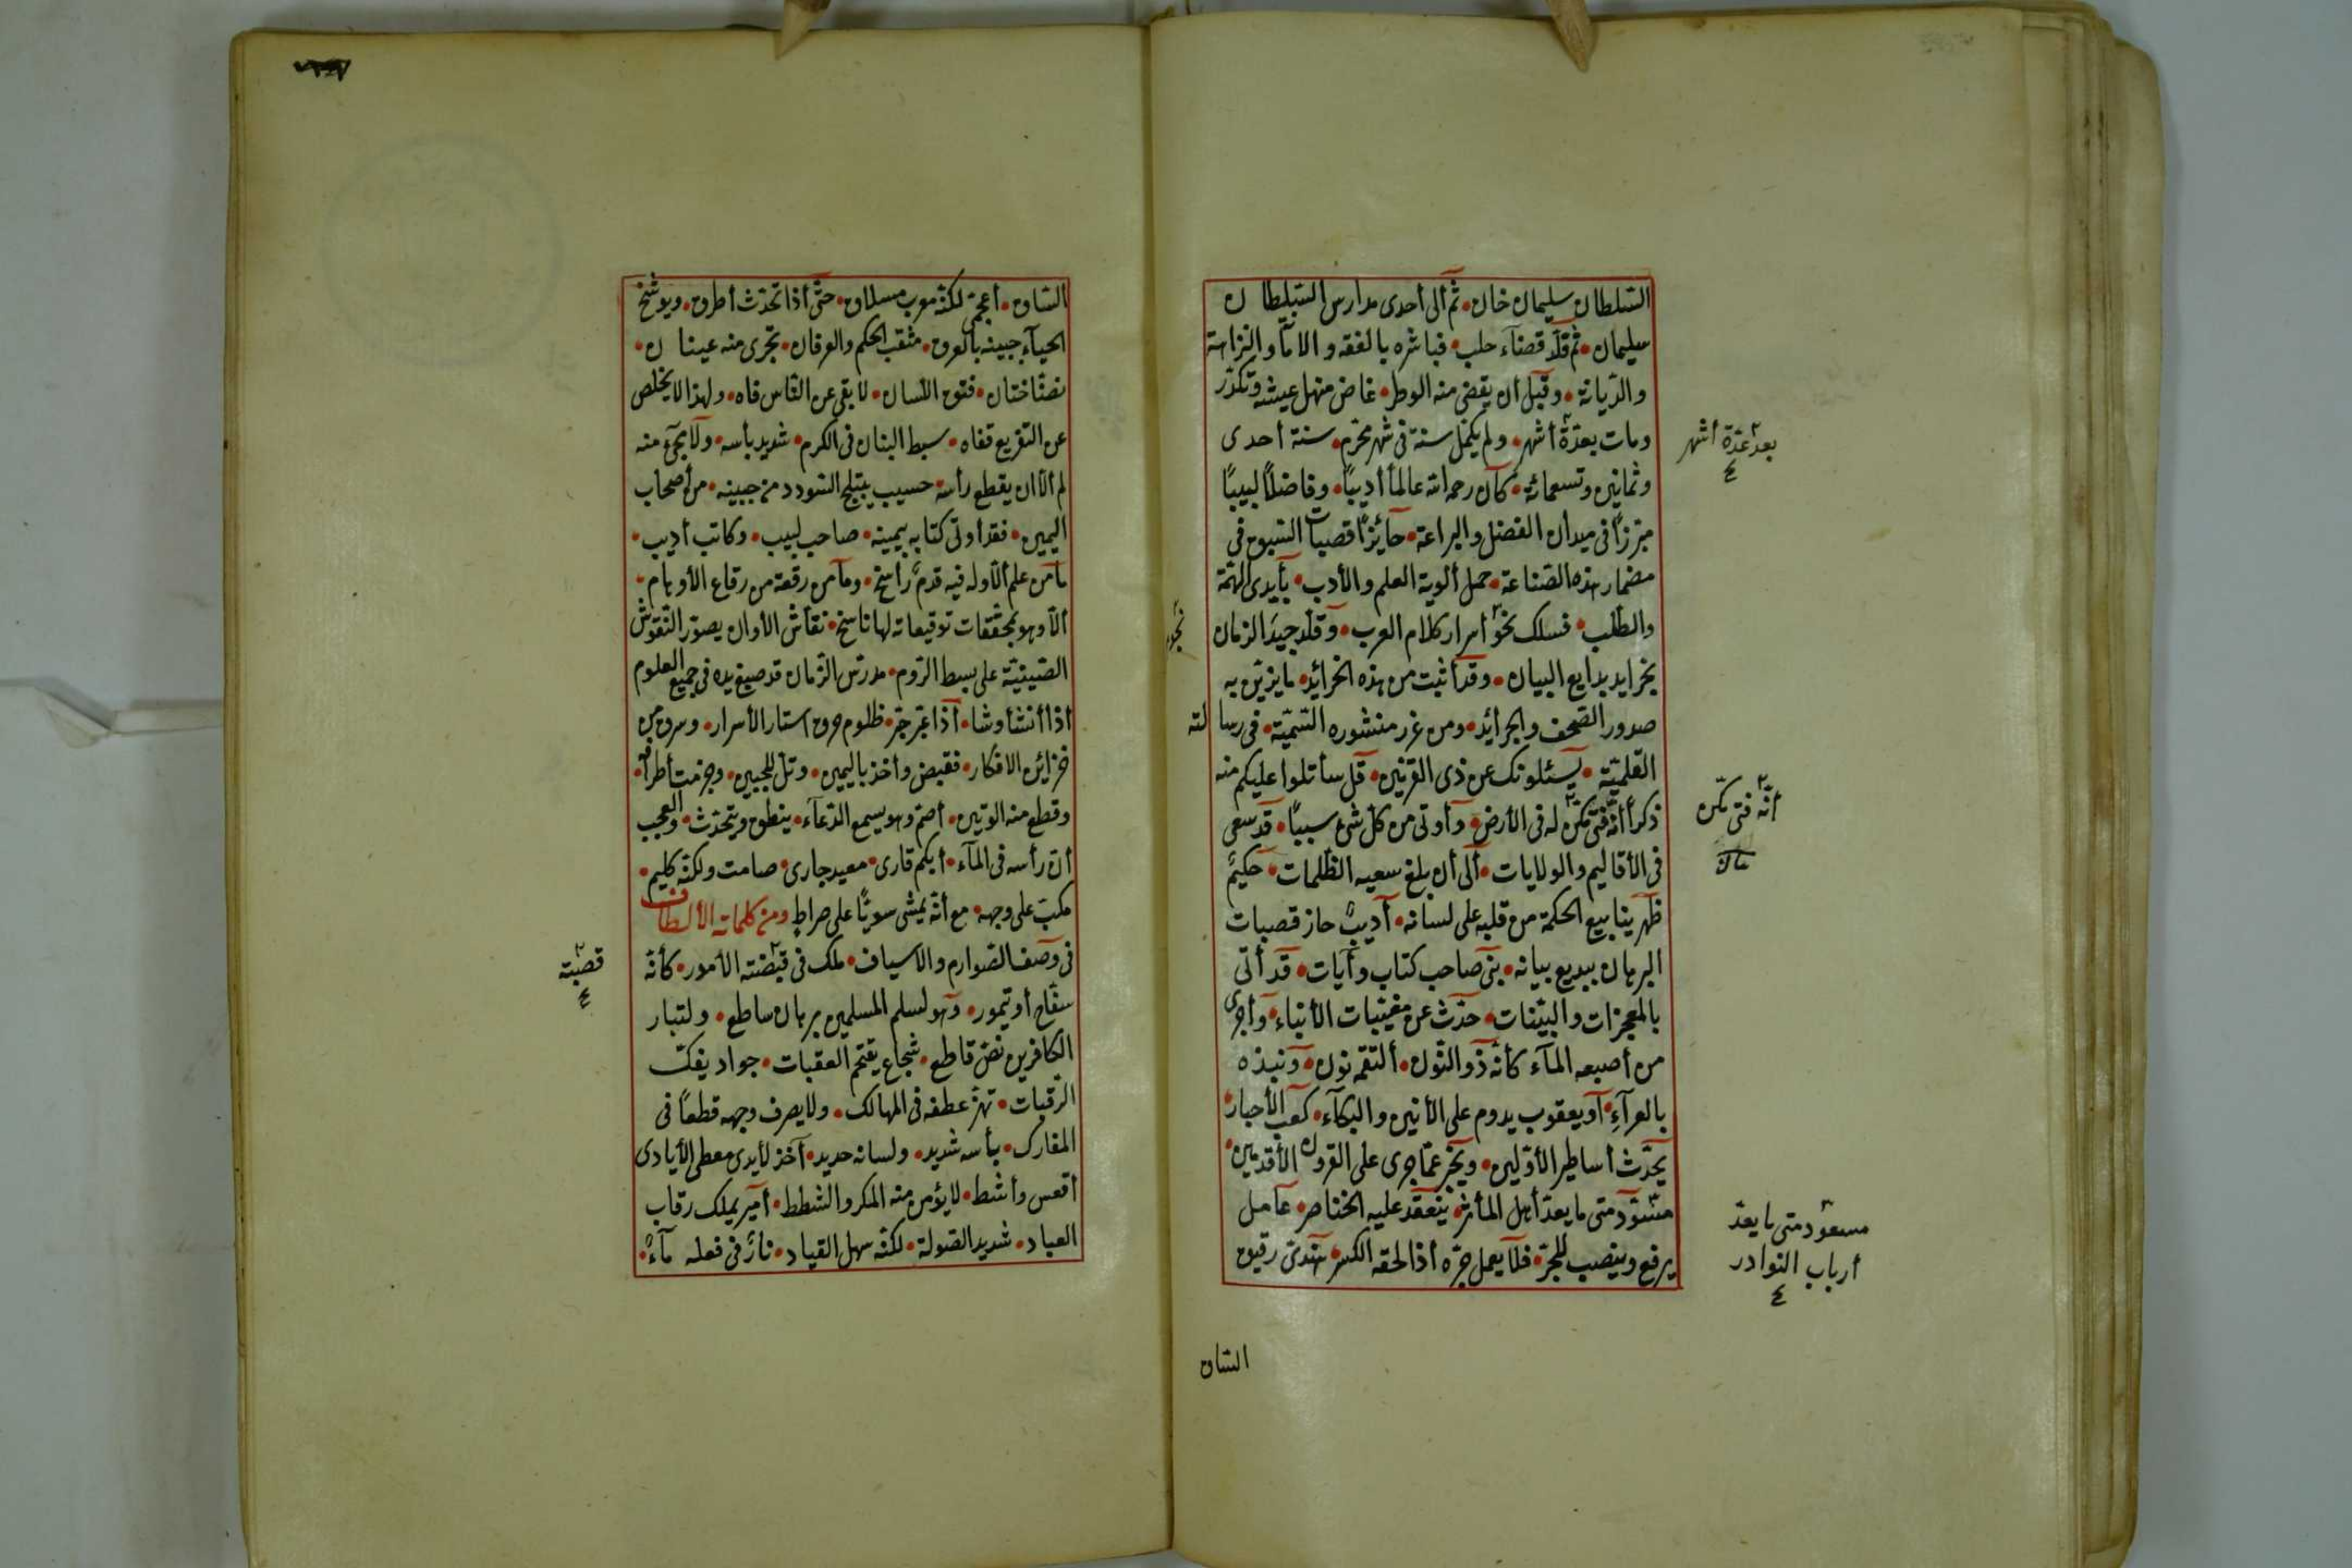 السلطان سليمان خان • ثم الى أحدى مدارس السلطان
سليمان • ثم قلد قضاء حلب • فباشره بالفقه والامانة والنزاهة
والديانة • وقبل أن يقضى منه الوطر • غاض منهل عيشه وتكدر
ومات بعدة أشهر • ولم يكمل سنة فى شهر محرم • سنة أحدى
بعد عدة أشهر
وثمانين وتسعمائة • كان رحمه الله عالما أديبًا • وفاضلًا لبيبًا
مبرزًا فى ميدان الفضل والبراعة • حائزًا قصبات السبق فى
مضمار هذه الصناعة • حمل ألوية العلم والأدب • بأيدى الهمة
والطلب • فسلك نحو أسرار كلام العرب • وقلد جيد الزمان
بخرايد بدايع البيان • وقد أثبت من هذه الخرائد • ما يزين به
صدور الصحف والجرائد • ومن غرر منثوره السمية • فى رسالته
القلمية • يسئلونك عن ذى القرنين • قل سأتلوا عليكم منه
ذكرًا أنه فتى مكن له فى الأرض • وأوتى من كل شئ سببًا • قد سعى
أنه فتى مكن
فى الأقاليم والولايات • ألى أن بلغ سعيه الظلمات • حكيم
ظهر ينابيع الحكمة من قلبه على لسانه • أديب حاز قصبات
البرهان ببديع بيانه • نبى صاحب كتاب وأيات • قد أتى
بالمعجزات والبينات • حدث عن مغيبات الأنباء • وأجرى
من أصبعه الماء كأنه ذو النون • ألتقمه نون • ونبذه
بالعراء • أو يعقوب يدوم على الأنين والبكاء • كعب الأحبار •
يحدث أساطير الأولين • ويخبر عما جرى على القرون الأقدمين •
مسعود متى ما يعد أهل المأثر • ينعقد عليه الخناصر • عامل
مسعود متى ما يعد
أرباب النوادر
يرفع وينصب للجر • فلا يعمل جره أذا لحقه الكسر • هندى رقيق
الساق
الساق • أعجمى لكنه معرب مسلاق • حتى أذا تحدث أطرق • ويوشخ
الحياء جبينه بالعرق • مثقب الحكم والعرفان • تجرى منه عينان •
نضاختان • فتوق اللسان • لا بقى عن الناس فاه • ولهذا لا يخلص
عن التقريع قفاه • سبط البنان فى الكرم • شديد بأسه • ولا يجئ منه
لم الا أن يقطع رأسه • حسيب يتبلج السودد من جبينه • من أصحاب
اليمين • فقد أوتى كتابه بيمينه • صاحب لبيب • وكاتب أديب •
ما من علم ألا وله فيه قدم راسخ • وما من رقعة من رقاع الأوهام •
ألا وهو بمحققات توقيعاته لها ناسخ • نقاش الأوان يصور النقوش
الصينية على بسط الروم • مدرس الزمان قد صبغ يده فى جميع العلوم
اذا أنشأ وشا • أذا عبر حبر • ظلوم خرق استار الأسرار • وسرق من
خزائن الافكار • فقبض وأخذ باليمين • وتل للجبين • وجزمت أطرافه •
وقطع منه الوتين • أصم وهو يسمع الدعاء • ينطق ويتحدث • والعجب
أن رأسه فى الماء • أبكم قارى • معيد جارى • صامت ولكنه كليم •
مكب على وجهه • مع أنه يمشى سويًا على صراط ومن كلماته الألطاف
فى وصف الصوارم والاسياف • ملك فى قبضته الأمور • كأنه
قصبته
سفاح أو تيمور • وهو لسلم المسلمين برهان ساطع • ولتبار
الكافرين نص قاطع • شجاع يقتحم العقبات • جواد يفك
الرقبات • تهز عطفه فى المهالك • ولا يصرف وجهه قطعًا فى
المعارك • بأسه شديد • ولسانه حديد • آخذ لأيدى معطى الأيادى
أقعس وأشط • لا يؤمن منه المكر والشطط • أمير يملك رقاب
العباد • شديد الصولة • لكنه سهل القياد • نار فى فعله ماء •